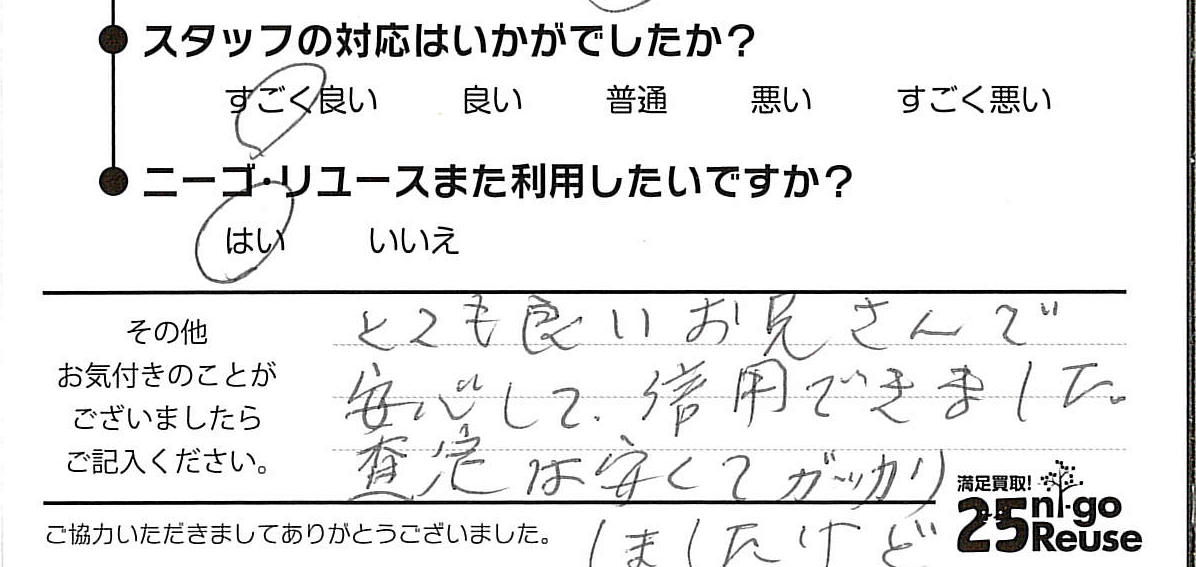 スタッフの対応はいかがでしたか？
すごく良い 良い 普通 悪い すごく悪い
ニーゴ・リユースまた利用したいですか？
はい いいえ
その他
お気付きのことが
ございましたら
ご記入ください。
とても良いお兄さんで
安心して、信用できました。
査定は安くてガッカリ
しましたけど
ご協力いただきましてありがとうございました。
満足買取!
25 ni-go
Reuse